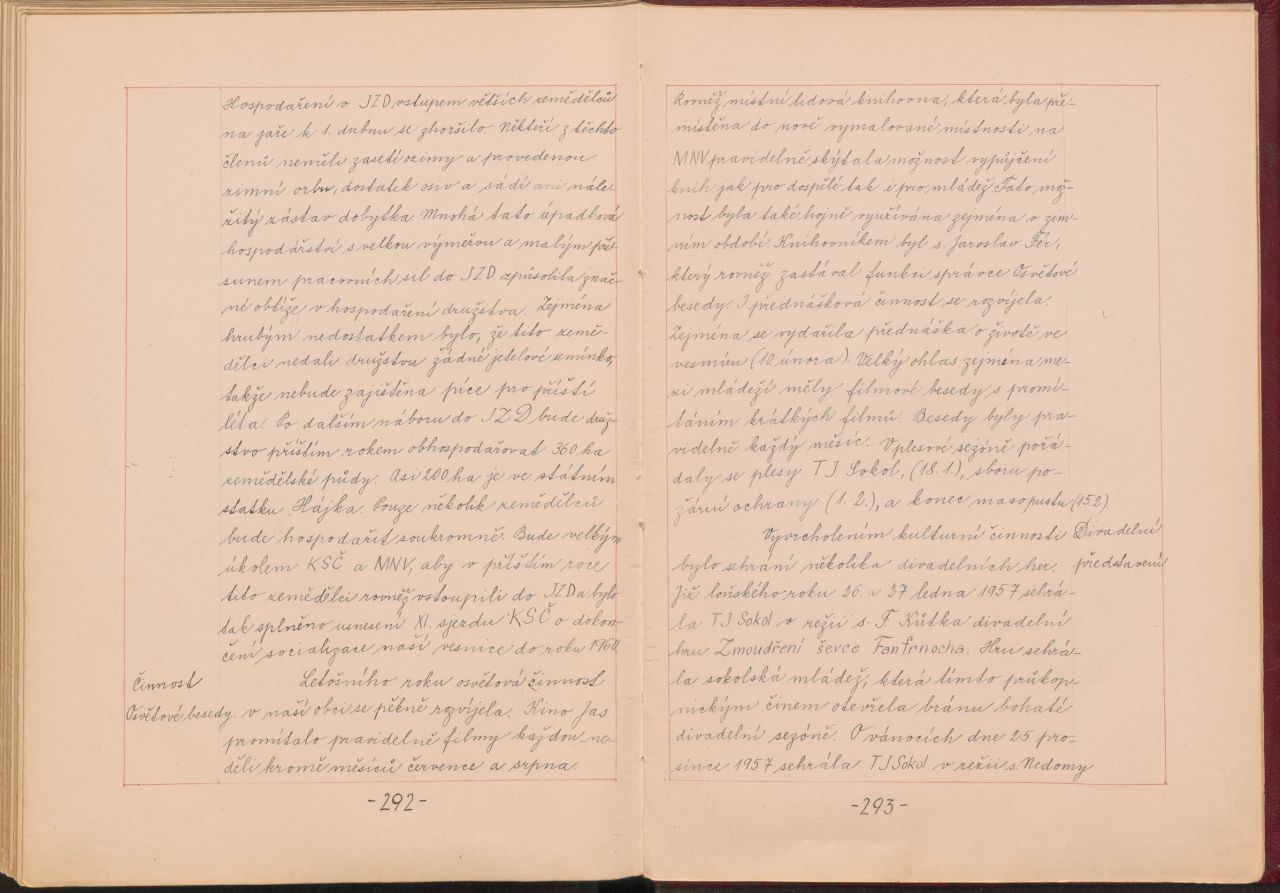 Hospodaření v JZD vstupem větších zemědělců
na jaře k 1. dubnu se zhoršilo. Někteří z těchto
členů neměli zaseté ozimy a provedenou
zimní orbu, dostatek osiv a sádí ani nále-
žitý zástav dobytka. Mnohá tato úpadková
hospodářství s velkou výměrou a malým pří-
sunem pracovních sil do JZD způsobila znač-
né obtíže v hospodaření družstva. Zejména
hrubým nedostatkem bylo, že tito země-
dělci nedali družstvu žádné jetelové semínko,
takže nebude zajištěna píce pro příští
léta. Po dalším náboru do JZD bude druž-
stvo příštím rokem obhospodařovat 360 ha
zemědělské půdy. Asi 200 ha je ve státním
statku Hájka. Pouze několik zemědělců
bude hospodařit soukromně. Bude velkým
úkolem KSČ a MNV, aby v příštím roce
tito zemědělci rovněž vstoupili do JZD a bylo
tak splněno usnesení XI. sjezdu KSČ o dokon-
čení socializace naší vesnice do roku 1960.
Činnost
Osvětové besedy.
Letošního roku osvětová činnost
v naší obci se pěkně rozvíjela. Kino Jas
promítalo pravidelně filmy každou ne-
děli kromě měsíců července a srpna.
-292-
Rovněž místní lidová knihovna, která byla pře-
místěna do nově vymalované místnosti na
MNV pravidelně skýtala možnost vypůjčení
knih jak pro dospělé tak i pro mládež. Tato mož-
nost byla také hojně využívána zejména v zim-
ním období. Knihovníkem byl s. Jaroslav Fér,
který rovněž zastával funkci správce Osvětové
besedy. I přednášková činnost se rozvíjela.
Zejména se vydařila přednáška o životě ve
vesmíru (10. února). Velký ohlas zejména me-
zi mládeží měly filmové besedy s promí-
táním krátkých filmů. Besedy byly pra-
videlně každý měsíc. V plesové sezóně pořá-
daly se plesy TJ Sokol, (18.1.), sboru po-
žární ochrany (1.2.), a konec masopustu (15.2.)
Vyvrcholením kulturní činnosti
Divadelní
představení
bylo sehrání několika divadelních her.
Již loňského roku 26. a 27 ledna 1957 sehrá-
la TJ Sokol v režii s. F. Kůtka divadelní
hru Zmoudření ševce Fanfrnocha. Hru sehrá-
la sokolská mládež, která tímto průkop-
nickým činem otevřela bránu bohaté
divadelní sezóně. O vánocích dne 25. pro-
since 1957 sehrála TJ Sokol v režii s. Nedomy
-293-